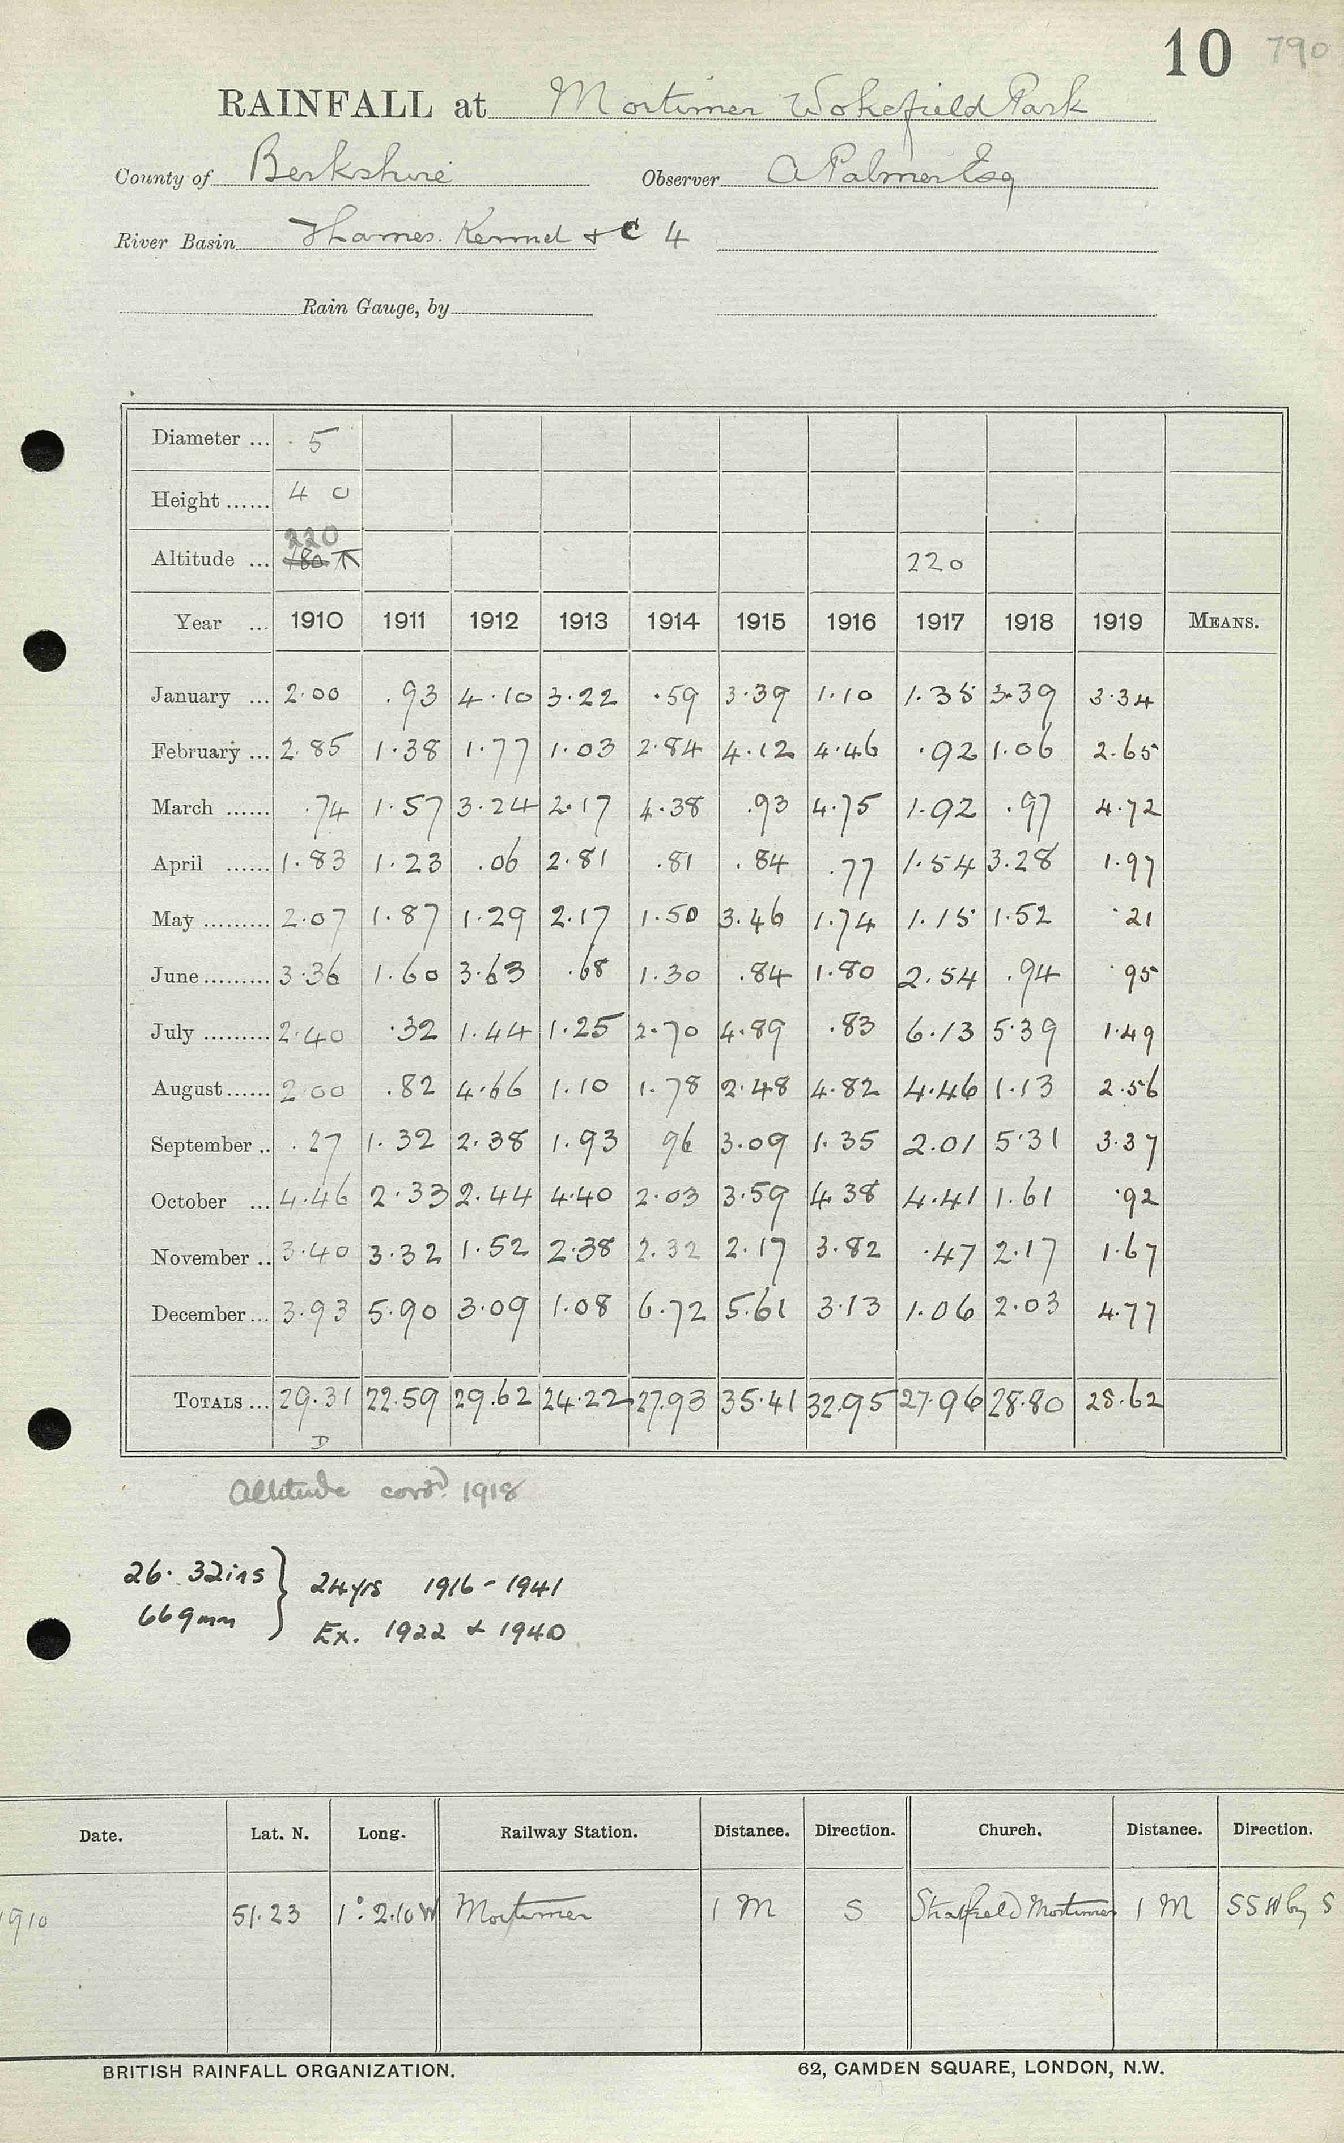 10 790
RAINFALL at Mortimer Wokefield Park
County of Berkshire Observer A Palmer Esq
River Basin Thames. Kennet + C 4
Rain Gauge, by
Diameter ... 5
Height ...... 4 0
220
Altitude ... 180 T 220
Year ... 1910 1911 1912 1913 1914 1915 1916 1917 1918 1919 MEANS.
January ... 2.00 .93 4.10 3.22 .59 3.39 1.10 1.35 3.39 3.34
February ... 2.85 1.38 1.77 1.03 2.84 4.12 4.46 .92 1.06 2.65
March ...... .74 1.57 3.24 2.17 4.38 .93 4.75 1.92 .97 4.72
April ...... 1.83 1.23 .06 2.81 .81 .84 .77 1.54 3.28 1.97
May ......... 2.07 1.87 1.29 2.17 1.50 3.46 1.74 1.15 1.52 .21
June ......... 3.36 1.60 3.63 .68 1.30 .84 1.80 2.54 .94 .95
July ......... 2.40 .32 1.44 1.25 2.70 4.89 .83 6.13 5.39 1.49
August ...... 2.00 .82 4.66 1.10 1.78 2.48 4.82 4.46 1.13 2.56
September .. .27 1.32 2.38 1.93 96 3.09 1.35 2.01 5.31 3.37
October ... 4.46 2.33 2.44 4.40 2.03 3.59 4.38 4.41 1.61 .92
November .. 3.40 3.32 1.52 2.38 2.32 2.17 3.82 .47 2.17 1.67
December ... 3.93 5.90 3.09 1.08 6.72 5.61 3.13 1.06 2.03 4.77
TOTALS ... 29.31 22.59 29.62 24.22 27.93 35.41 32.95 27.96 28.80 28.62
D
Altitude corrd. 1918
26.32ins } 24yrs 1916 - 1941
669mm } Ex. 1922 + 1940
Date. Lat. N. Long. Railway Station. Distance. Direction. Church. Distance. Direction.
1910 51.23 1°.2.10 W Mortimer 1 M S Stratfield Mortimer 1 M SSW by S
BRITISH RAINFALL ORGANIZATION. 62, CAMDEN SQUARE, LONDON, N.W.